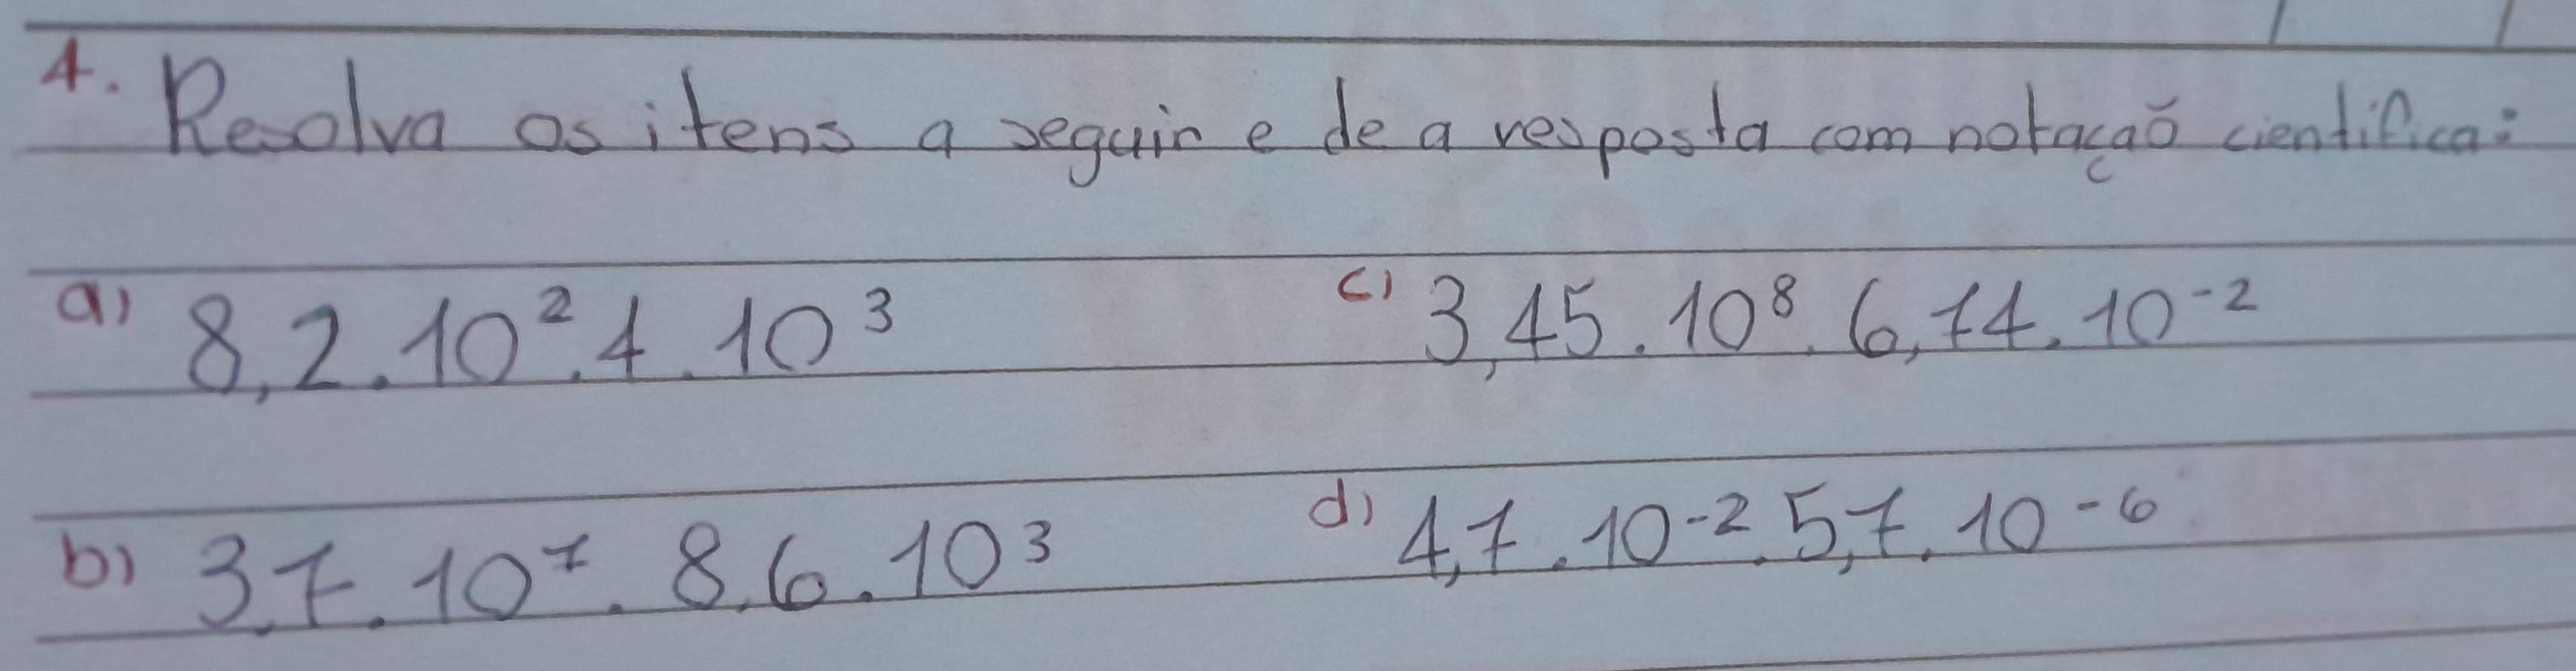 4. Resolva os itens a seguir e de a resposta com notação cientifica:
a) 8,2 . 10² . 4 . 10³
c) 3,45 . 10⁸ . 6,74 . 10⁻²
b) 3,7 . 10⁷ . 8,6 . 10³
d) 4,7 . 10⁻² . 5,7 . 10⁻⁶